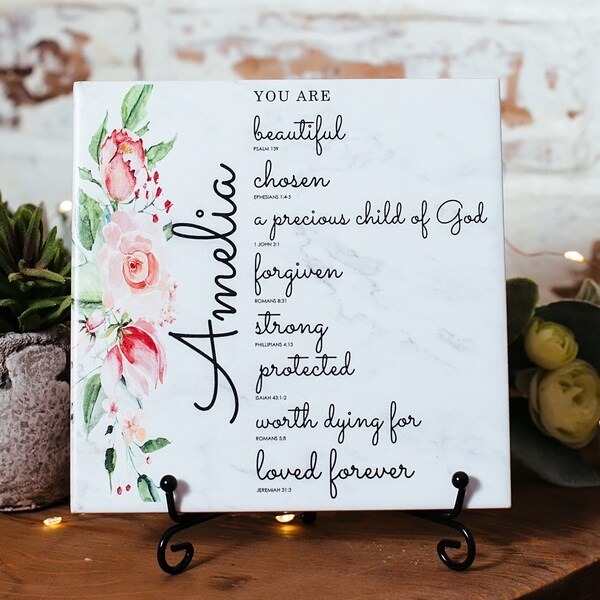 Amelia
YOU ARE
beautiful
PSALM 139
chosen
EPHESIANS 1:4-5
a precious child of God
1 JOHN 3:1
forgiven
ROMANS 8:31
strong
PHILLIPIANS 4:13
protected
ISAIAH 43:1-2
worth dying for
ROMANS 5:8
loved forever
JEREMIAH 31:3